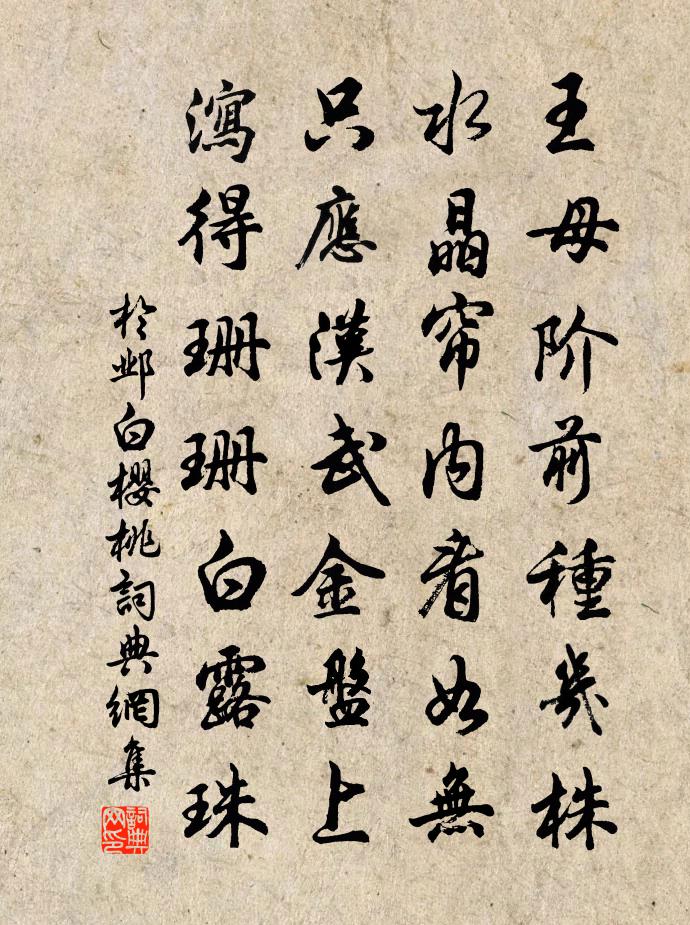 王母阶前種幾株
水晶帘内看如無
只應漢武金盤上
瀉得珊珊白露珠
於邺白櫻桃詞典網集
詞典網印